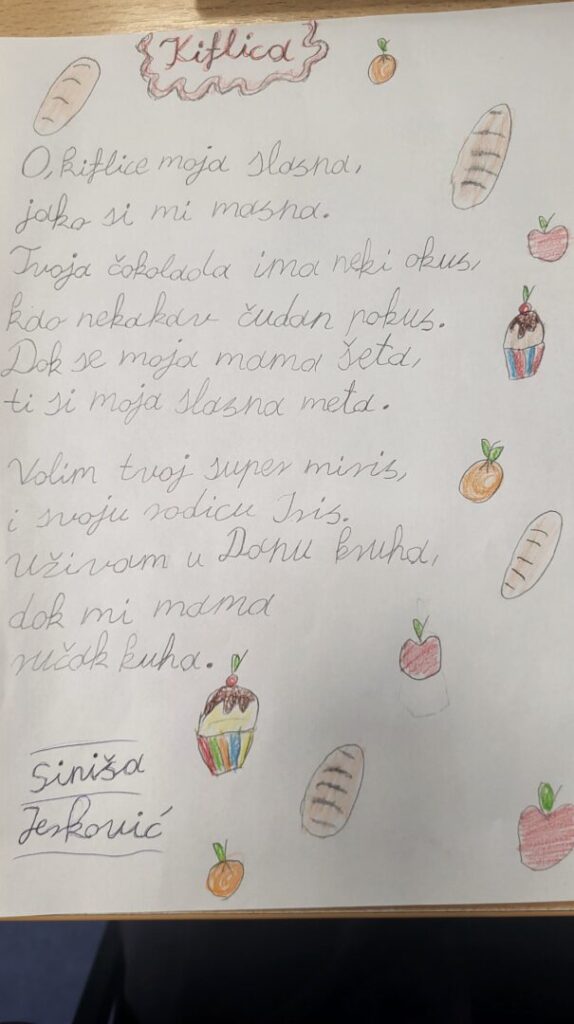 Kiflica
O, kiflice moja slasna,
jako si mi masna.
Tvoja čokolada ima neki okus,
kao nekakav čudan pokus.
Dok se moja mama šeta,
ti si moja slasna meta.
Volim tvoj super miris,
i svoju rodicu Iris.
Uživam u Danu kruha,
dok mi mama
ručak kuha.
Siniša
Jerković